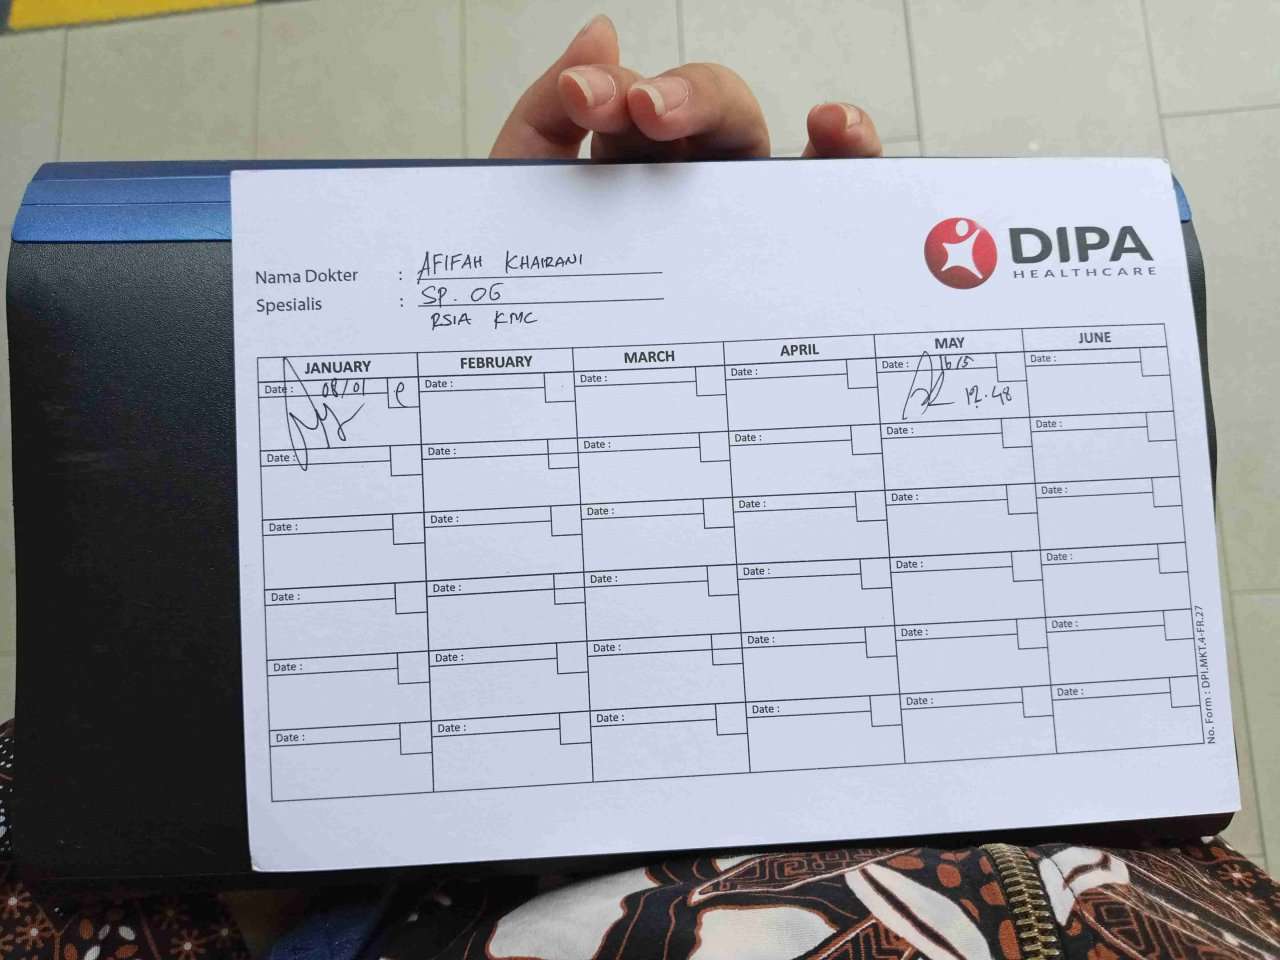 DIPA
HEALTHCARE
Nama Dokter : AFIFAH KHAIRANI
Spesialis : SP. OG
RSIA KMC
JANUARY FEBRUARY MARCH APRIL MAY JUNE
Date : 08/01 Date : Date : Date : Date : 16/5 Date :
12.48
Date : Date : Date : Date : Date : Date :
Date : Date : Date : Date : Date : Date :
Date : Date : Date : Date : Date : Date :
Date : Date : Date : Date : Date : Date :
Date : Date : Date : Date : Date : Date :
No. Form : DPI.MKT.4-FR.27